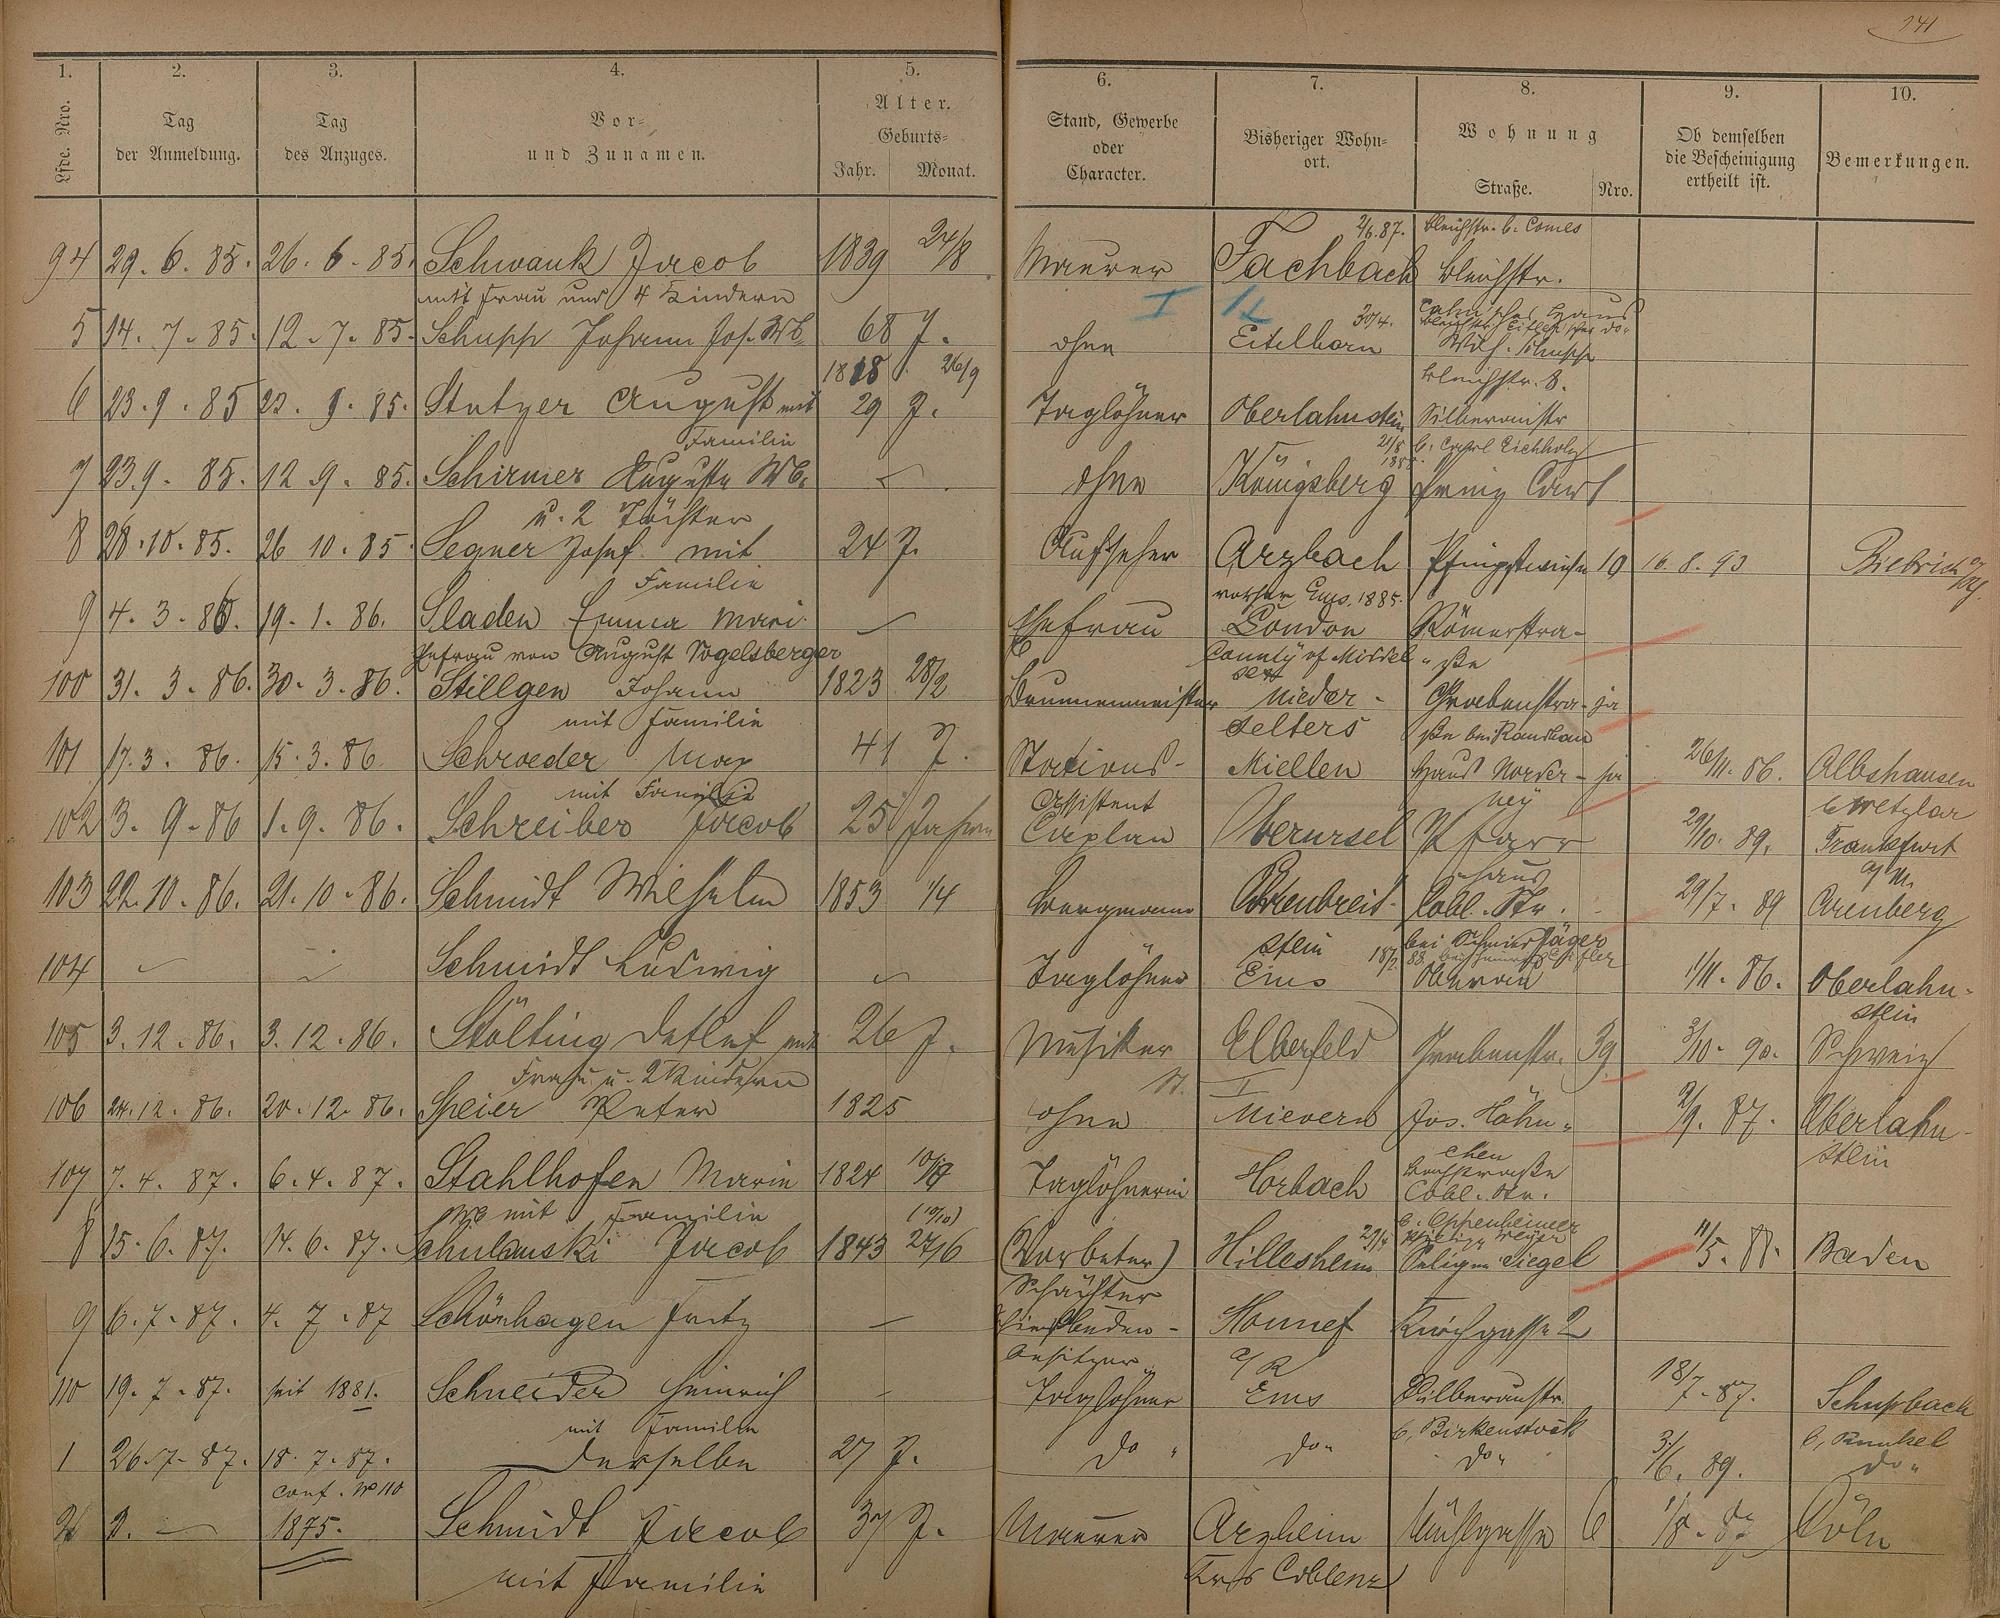 241
1. 2. 3. 4. 5. 6. 7. 8. 9. 10.
Lfde. Nro.
Tag der Anmeldung.
Tag des Anzuges.
Vor- und Zunamen.
Alter. Geburts- Jahr. Monat.
Stand, Gewerbe oder Character.
Bisheriger Wohn-ort.
Wohnung Straße. Nro.
Ob demselben die Bescheinigung ertheilt ist.
Bemerkungen.
2/6.87. Bleichstr. b. Comes
94 29. 6. 85. 26. 6. 85. Schwank Jacob 1839 24/8 Maurer Fachbach Bleichstr.
mit Frau und 4 Kindern
30/4.
5 14. 7. 85. 12. 7. 85. Schupp Johann Jos. Wb 68 J. ohne Eitelborn Wilh. Schupp
1818 26/9 Bleichstr. 8.
6 23. 9. 85 22. 9. 85. Stutzer August mit 29 J. Taglöhner Oberlahnstein Silberaustr
Familie 21/8 b. Carl Eichholz
7 23. 9. 85. 12. 9. 85. Schirmer Auguste Wb. — ohne Königsberg Prinz Carl
u. 2 Töchter
8 28. 10. 85. 26 10. 85. Segner Josef mit 24 J. Aufseher Arzbach Pfingstwiese 10 16. 8. 93 Biebrich a/Rh.
Familie vorher Ems. 1885.
9 4. 3. 86. 19. 1. 86. Sladen Emma Mari — Ehefrau London Römerstra-
Ehefrau von August Vogelsberger County of Middel- ße
sex
100 31. 3. 86. 30. 3. 86. Stillgen Johann 1823 28/2 Brunnenmeister Nieder- Grabenstra- ja
mit Familie selters ße bei
101 17. 3. 86. 15. 3. 86. Schroeder Max 41 J. Stations- Miellen Haus Norder- ja 26/11. 86. Albshausen
mit Familie Assistent ney b Wetzlar
102 3. 9. 86 1. 9. 86. Schreiber Jacob 25 Jahre Caplan Oberursel Pfarr 29/10. 89. Frankfurt
haus a/M.
103 22. 10. 86. 21. 10. 86. Schmidt Wilhelm 1853 1/4 Bergmann Ehrenbreit- Cobl. Str. 29/7. 89 Arenberg
stein bei Schmied Jäger
18/2. 88.
104 — — Schmidt Ludwig — Taglöhner Ems Oberau 1/11. 86. Oberlahn-
stein
105 3. 12. 86. 3. 12. 86. Stölting Detlef mit 26 J. Musiker Elberfeld Grabenstr. 39 3/10. 90. Schweiz
Frau u. 2 Kindern St. I
106 24. 12. 86. 20. 12. 86. Speier Peter 1825 ohne Mievern Jos. Höhn- 2/9. 87. Oberlahn-
chen stein
107 7. 4. 87. 6. 4. 87. Stahlhofen Marie 1824 Taglöhnerin Horbach Cobl. Str.
Wb mit Familie (10/10) b. Oppenheimer
8 15. 6. 87. 14. 6. 87. Schulanski Jacob 1843 27/6 (Vorbeter) Hillesheim 29/4 Seligm. Siegel 11/5. 88. Baden
Schächter
9 6. 7. 87. 4. 7. 87 Schönhagen Fritz — Schießbuden- Honnef Kirchgasse 2
besitzer a/R
110 19. 7. 87. seit 1881. Schneider Heinrich — Taglöhner Ems Silberaustr. 18/7. 87. Schupbach
mit Familie b. Birkenstock b. Runkel
1 26. 7. 87. 18. 7. 87. Derselbe 27 J. do " do " do " 3/6. 89. do "
conf. No 110
2 2. — 1875. Schmidt Jacob 37 J. Maurer Arzheim Mühlgasse 6 1/8. 87 Cöln
mit Familie Krs Coblenz